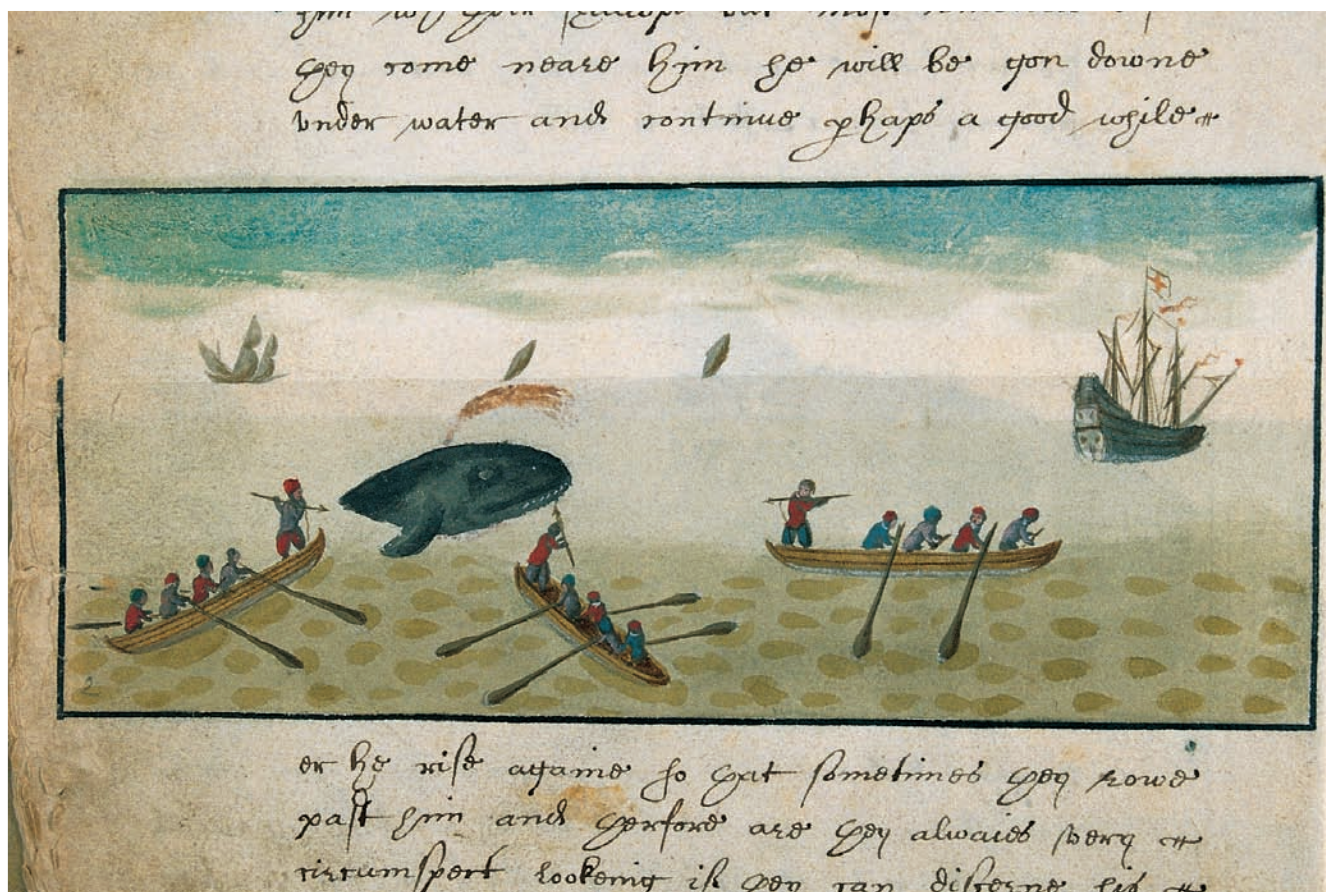 him their but most
they come neare him he will be gon downe
vnder water and continue phaps a good while
2
er he rise againe so that sometimes they rowe
past him and therfore are they alwaies very
circumspect lookeing if they can discerne his